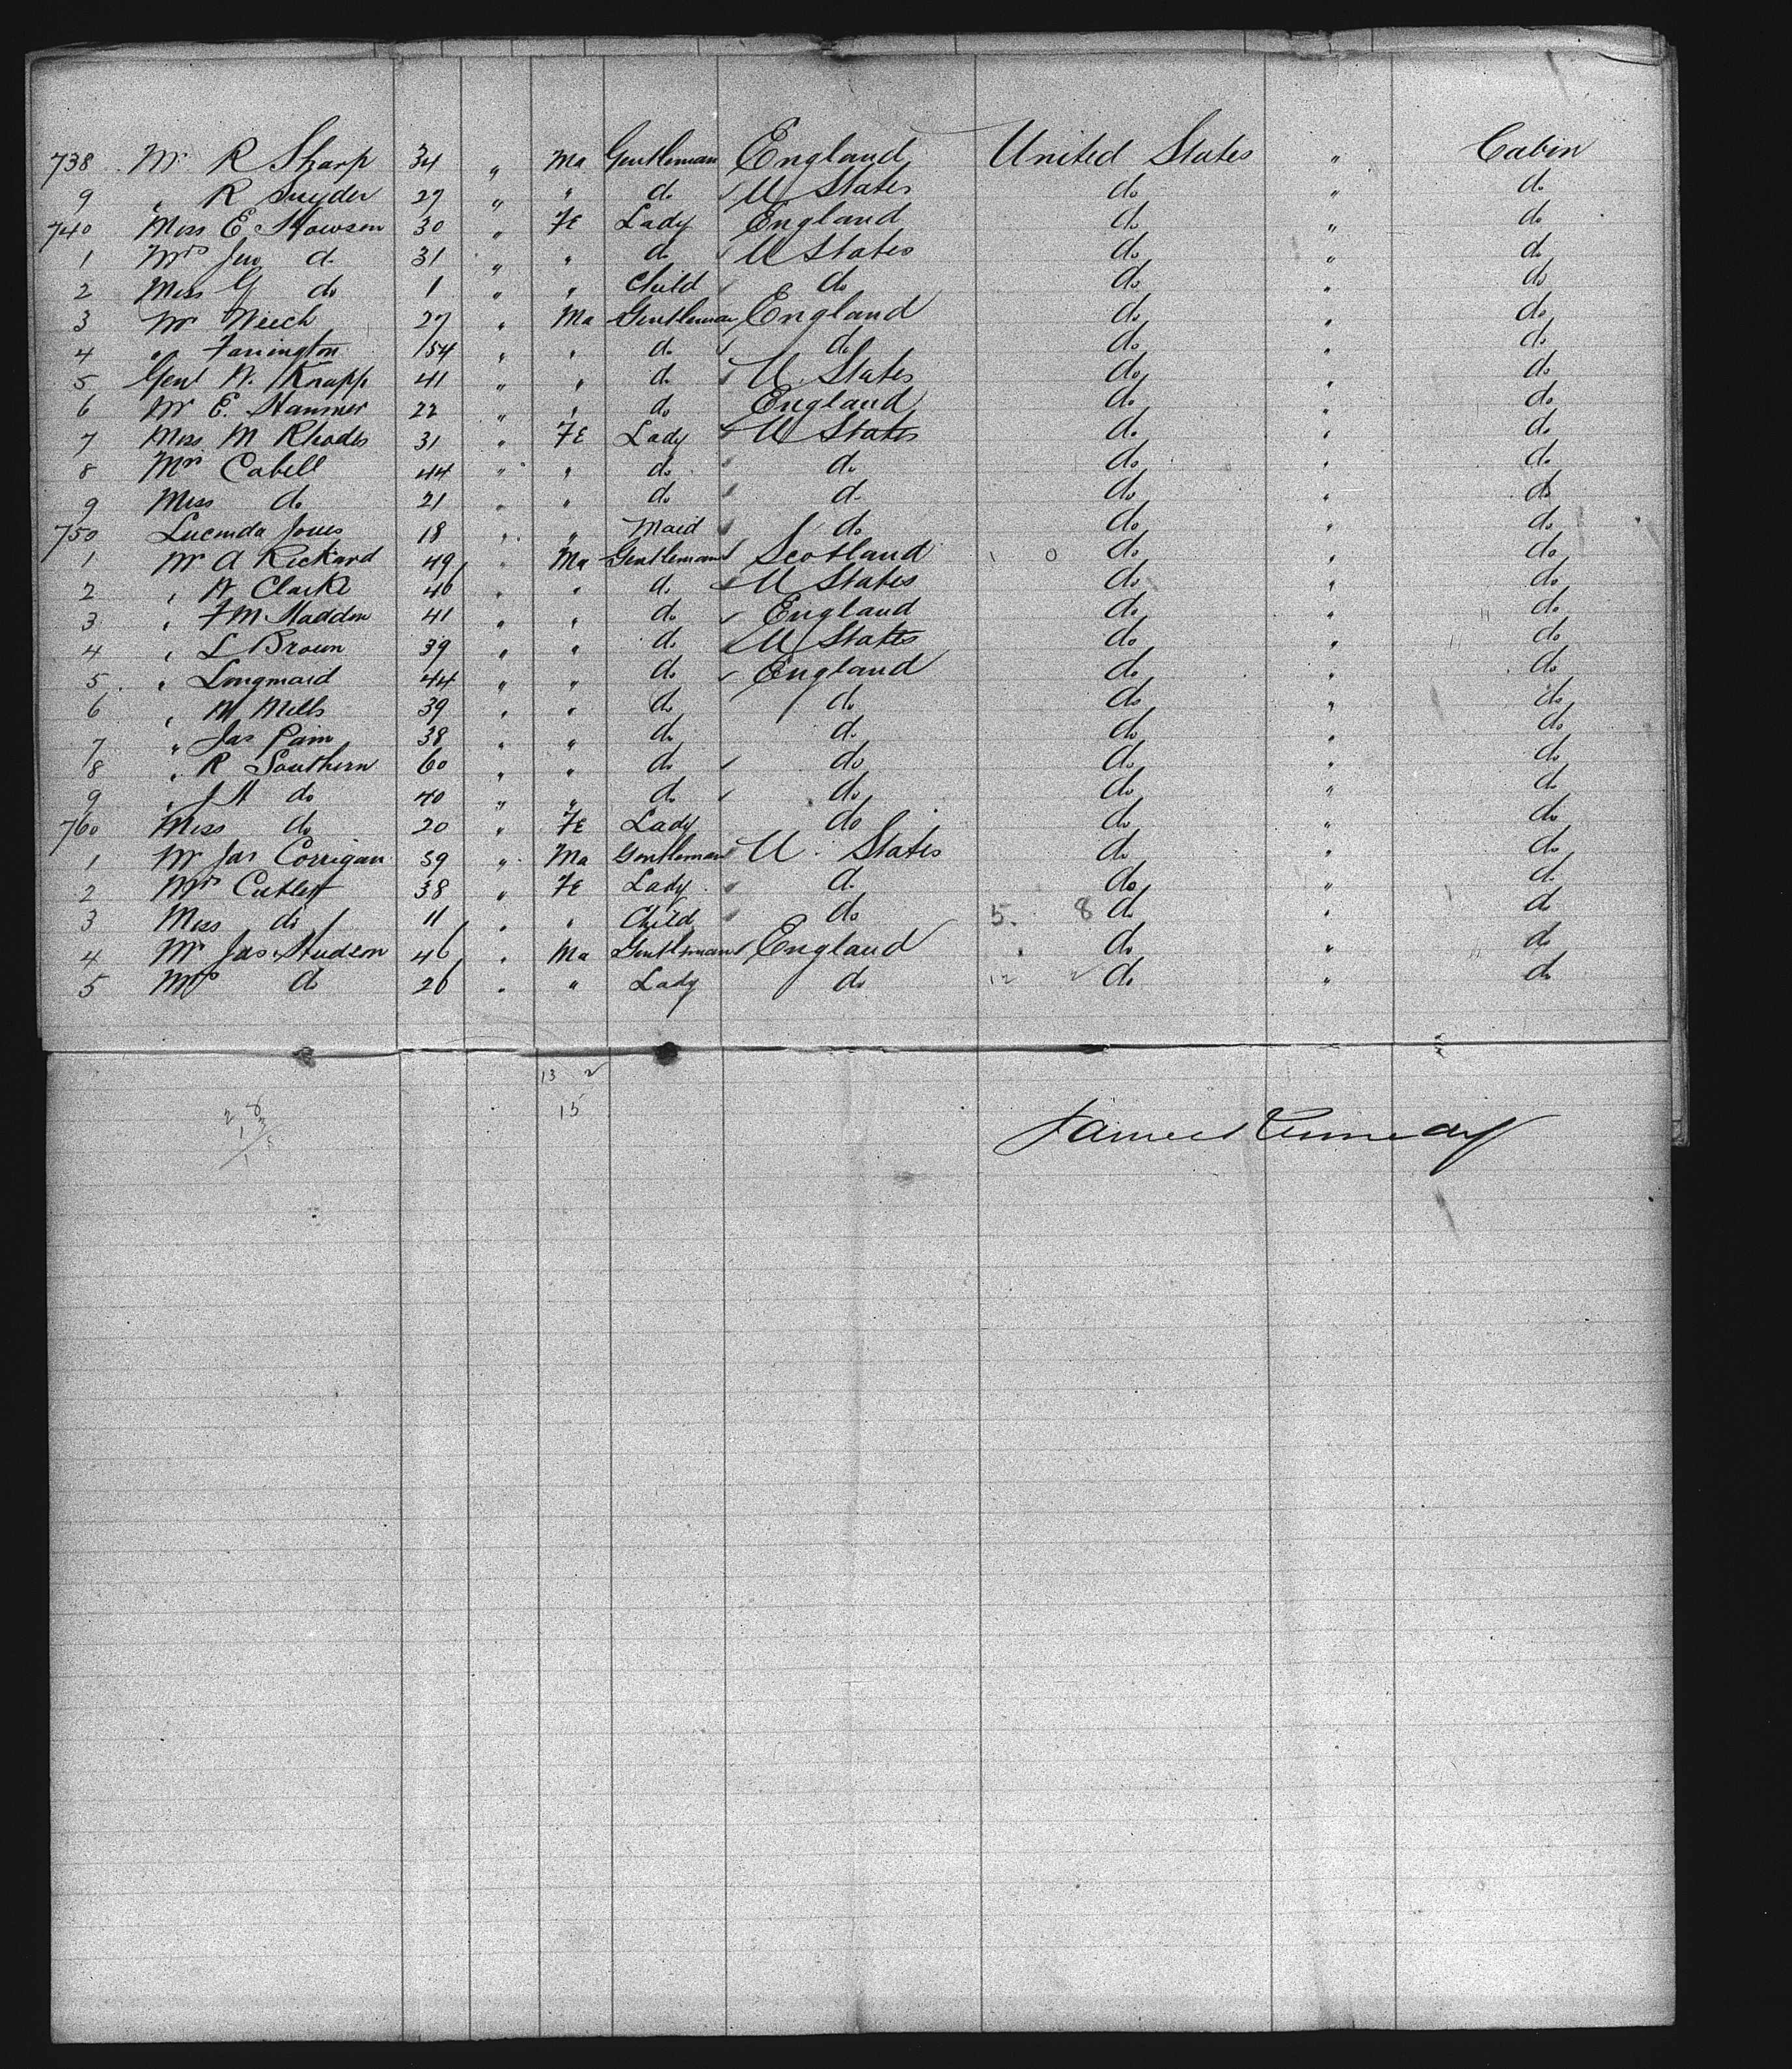 738 Mr R Sharp 34 " Ma Gentleman England United States " Cabin
9 " R Snyder 27 " " do U States do " do
740 Miss E Howson 30 " Fe Lady England do " do
1 Mrs Jno do 31 " " do U States do " do
2 Miss G do 1 " " Child do do " do
3 Mr Weech 27 " Ma Gentleman England do " do
4 " Farrington 54 " " do do do " do
5 Genl W. Knapp 41 " " do U. States do " do
6 Mr E. Hanmer 22 " " do England do " do
7 Miss M Rhodes 31 " Fe Lady U States do " do
8 Mrs Cabell 44 " " do do do " do
9 Miss do 21 " " do do do " do
750 Lucinda Jones 18 " " Maid do do " do
1 Mr A Rickard 49 " Ma Gentleman Scotland do " do
2 " W Clarke 46 " " do U States do " do
3 " F M Hadden 41 " " do England do " do
4 " L Brown 39 " " do U States do " do
5 " Longmaid 44 " " do England do " do
6 " W Mills 39 " " do do do " do
7 " Jas Pain 38 " " do do do " do
8 " R Southern 60 " " do do do " do
9 " J H do 40 " " do do do " do
760 Miss do 20 " Fe Lady do do " do
1 Mr Jas Corrigan 39 " Ma Gentleman U. States do " do
2 Mrs Cutler 38 " Fe Lady do do " do
3 Miss do 11 " " Child do 5. 8 do " do
4 Mr Jas Hudson 46 " Ma Gentleman England do " do
5 Mrs do 26 " " Lady do 12 do " do
13 2
15
James Kennedy